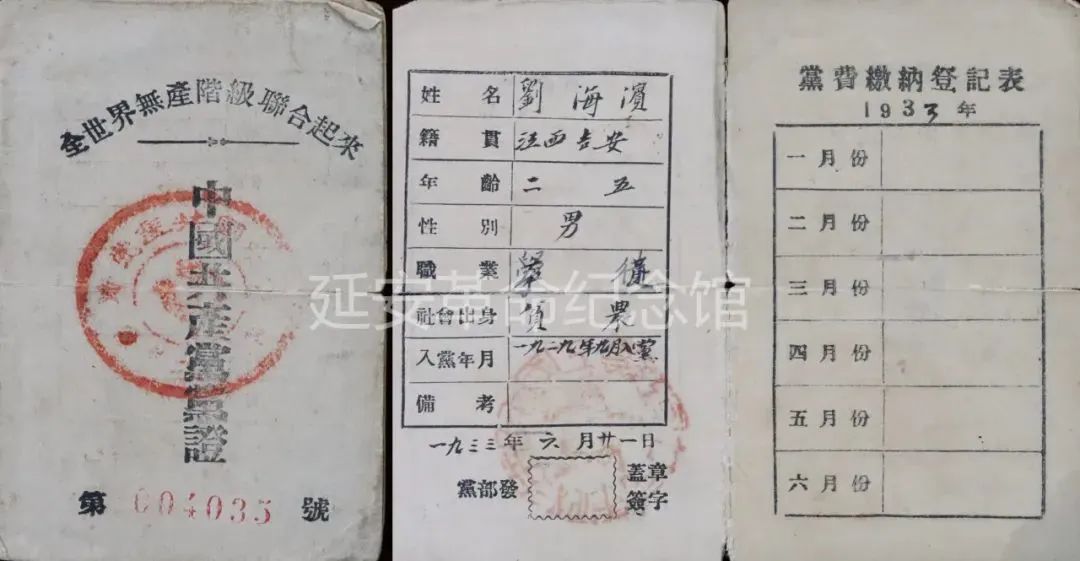 全世界無產階級聯合起來
中國共產黨黨證
第 004035 號
姓名 劉海濱
籍貫 江西吉安
年齡 二五
性別 男
職業 學徒
社會出身 貧農
入黨年月 一九二九年九月入黨
備考
一九三三年六月廿一日
黨部發
蓋章
簽字
黨費繳納登記表
1933年
一月份
二月份
三月份
四月份
五月份
六月份
延安革命纪念馆